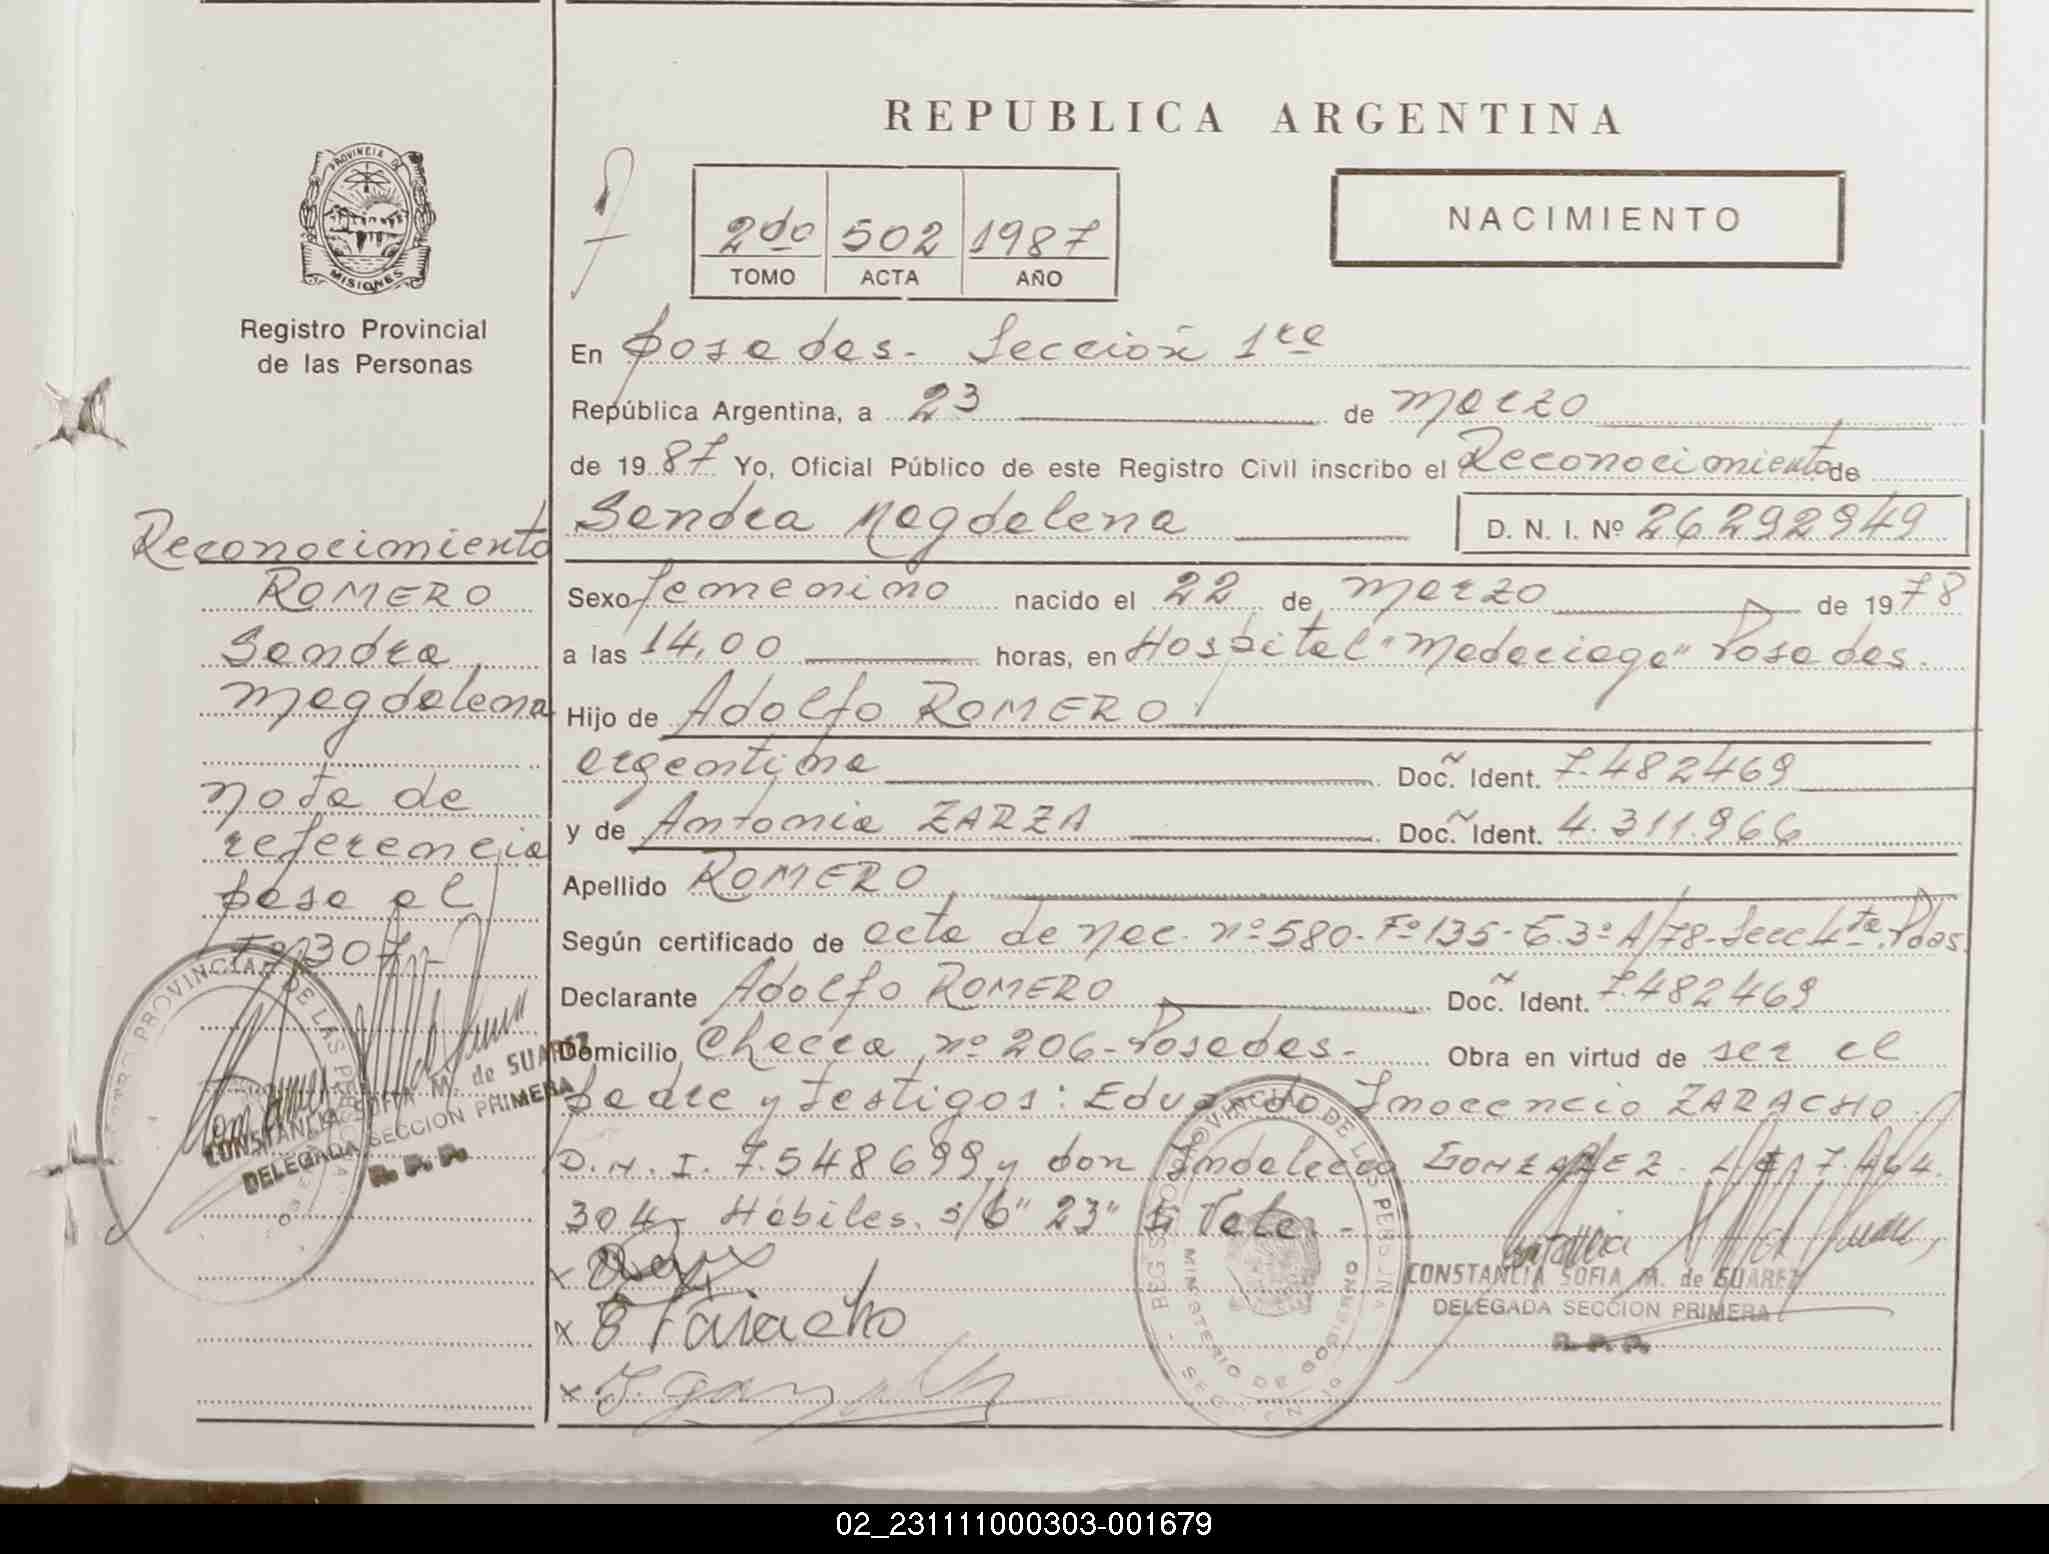 REPUBLICA ARGENTINA
PROVINCIA DE
MISIONES
Registro Provincial
de las Personas
2do 502 1987
TOMO ACTA AÑO
NACIMIENTO
En Posadas - Sección 1ra
República Argentina, a 23 de Marzo
de 1987 Yo, Oficial Público de este Registro Civil inscribo el Reconocimiento de
Sandra Magdalena D. N. I. Nº 26292949
Sexo femenino nacido el 22 de Marzo de 1978
a las 14,00 horas, en Hospital "Madariaga" Posadas.
Hijo de Adolfo ROMERO
argentina Doc. Ident. 7.482469
y de Antonia ZARZA Doc. Ident. 4.311.966
Apellido ROMERO
Según certificado de acta de nac. nº 580 - Fº 135 - T. 3º A/78 - Secc 4ta. Pdas.
Declarante Adolfo ROMERO Doc. Ident. 7.482469
Domicilio Checra nº 206 - Posadas - Obra en virtud de ser el
padre y testigos: Eduardo Inocencio ZARACHO
D.N.I. 7.548699 y don Indalecio GONZALEZ 7.464.
304 - Hábiles. s/b "23" Vale. -
x
x E Zaracho
x I. Gonzalez
Reconocimiento
ROMERO
Sandra
Magdalena
nota de
referencia
pasa al
Fº 307 -
REGISTRO PROVINCIAL DE LAS PERSONAS
CONSTANCIA SOFIA M. de SUAREZ
DELEGADA SECCION PRIMERA
R. P. P.
REGISTRO PROVINCIAL DE LAS PERSONAS
MINISTERIO DE GOBIERNO
CONSTANCIA SOFIA M. de SUAREZ
DELEGADA SECCION PRIMERA
R. P. P.
02_231111000303-001679